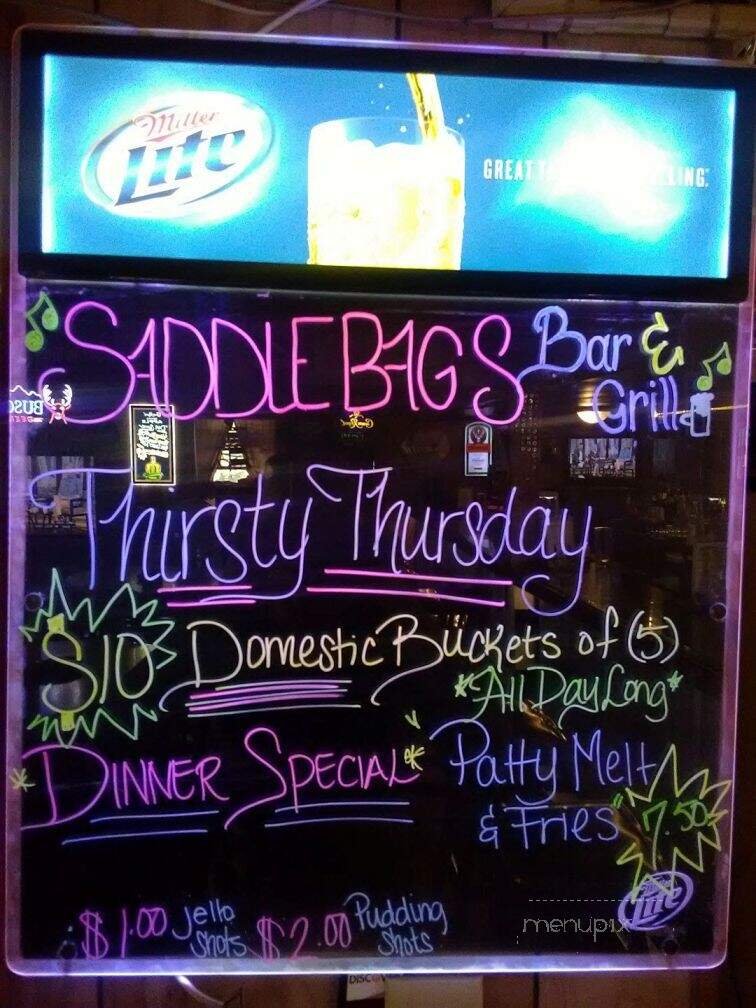 Miller
Lite
GREAT
SADDLEBAGS Bar &
Grill
BUSCH
Thirsty Thursday
$10 Domestic Buckets of (5)
*All Day Long*
*Dinner Special* Patty Melt
& Fries 7.50
$1.00 Jello Shots $2.00 Pudding Shots
Miller
Lite
menupix